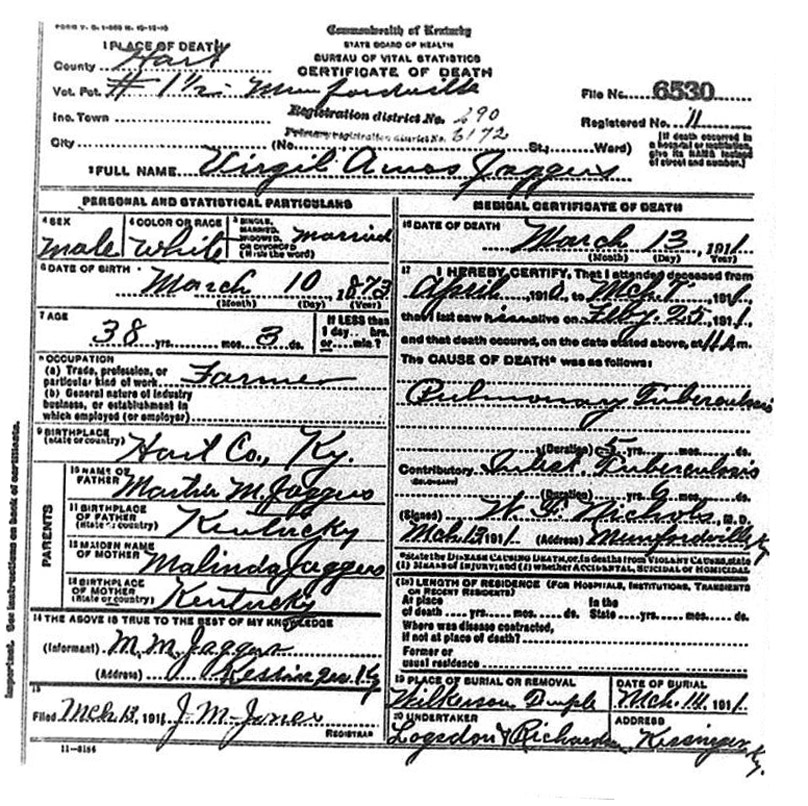 FORM V. S. 1-
Commonwealth of Kentucky
STATE BOARD OF HEALTH
BUREAU OF VITAL STATISTICS
CERTIFICATE OF DEATH
1 PLACE OF DEATH
County Hart
Vot. Pct. # 1 1/2 - Munfordville
Inc. Town
City (No. St.; Ward)
Registration district No. 290
Primary registration district No. 6172
File No. 6530
Registered No. 11
[If death occurred in a hospital or institution, give its NAME instead of street and number.]
2 FULL NAME Virgil Amos Jaggers
PERSONAL AND STATISTICAL PARTICULARS
3 SEX male
4 COLOR OR RACE White
5 SINGLE, MARRIED, WIDOWED, OR DIVORCED (Write the word) married
6 DATE OF BIRTH March 10 1873
(Month) (Day) (Year)
7 AGE 38 yrs. mos. 3 ds.
If LESS than 1 day hrs. or min.?
8 OCCUPATION
(a) Trade, profession, or particular kind of work Farmer
(b) General nature of industry
business, or establishment in
which employed (or employer)
9 BIRTHPLACE
(State or country) Hart Co., Ky.
PARENTS
10 NAME OF FATHER M. Jaggers
11 BIRTHPLACE OF FATHER
(State or country) Kentucky
12 MAIDEN NAME OF MOTHER Malinda Jaggers
13 BIRTHPLACE OF MOTHER
(State or country) Kentucky
14 THE ABOVE IS TRUE TO THE BEST OF MY KNOWLEDGE
(Informant) M. M. Jaggers
(Address) Ky
15
Filed Mch 13, 1911 J. M. Jones
REGISTRAR
11-8184
MEDICAL CERTIFICATE OF DEATH
16 DATE OF DEATH March 13, 1911
(Month) (Day) (Year)
17 I HEREBY CERTIFY, That I attended deceased from
April 1910, to Mch 7, 1911,
that I last saw h alive on Feby. 25, 1911,
and that death occured, on the date stated above, at 11 A m.
The CAUSE OF DEATH* was as follows:
Pulmonary Tuberculosis
(Duration) 5 yrs. mos. ds.
Contributory Intest. Tuberculosis
(SECONDARY)
(Duration) yrs. 6 mos. ds.
(Signed) Nichols, M. D.
Mch 13 1911 (Address) Munfordville Ky
*State the DISEASE CAUSING DEATH, or, in deaths from VIOLENT CAUSES, state
(1) MEANS OF INJURY; and (2) whether ACCIDENTAL, SUICIDAL or HOMICIDAL
18 LENGTH OF RESIDENCE (FOR HOSPITALS, INSTITUTIONS, TRANSIENTS
OR RECENT RESIDENTS)
At place of death yrs. mos. ds. In the State yrs. mos. ds.
Where was disease contracted,
if not at place of death?
Former or
usual residence
19 PLACE OF BURIAL OR REMOVAL
Wilkerson Temple
DATE OF BURIAL
Mch. 14, 1911
20 UNDERTAKER
Logsdon & Richardson
ADDRESS
Kessinger Ky.
Important. See instructions on back of certificate.